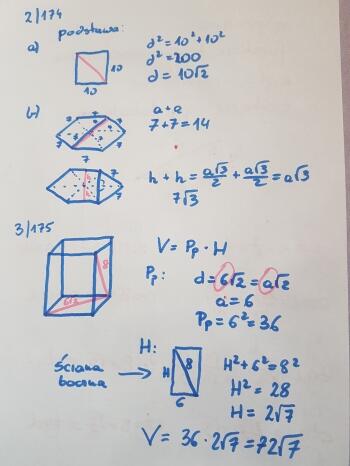 2/174
podstawa:
a)
10
10
d² = 10² + 10²
d² = 200
d = 10√2
b)
7
7
7
7
7
a+a
7+7=14
7
7
h + h = a√3/2 + a√3/2 = a√3
7√3
3/175
8
6√2
V = Pp · H
Pp:
d = 6√2 = a√2
a = 6
Pp = 6² = 36
H:
ściana
boczna
H
8
6
H² + 6² = 8²
H² = 28
H = 2√7
V = 36 · 2√7 = 72√7